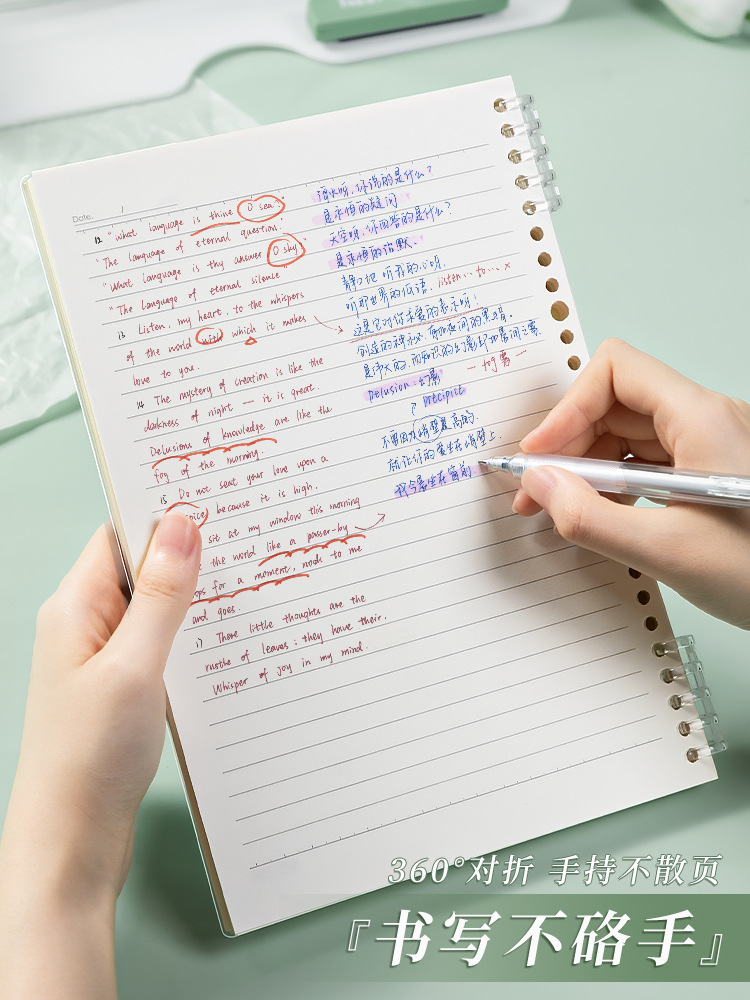 Date.        /
12 "what language is thine O sea?"
"The language of eternal question."
"What language is thy answer O sky
"The Language of eternal silence
13 Listen, my heart, to the whispers
of the world with which it makes
love to you.
14 The mystery of creation is like the
darkness of night — it is great.
Delusions of knowledge are like the
fog of the morning.
15 Do not seat your love upon a
because it is high.
sit at my window this morning
the world like a passer-by
for a moment, nods to me
and goes.
17 There little thoughts are the
rustle of leaves; they have their.
Whisper of joy in my mind.
海水呀,你说的是什么?
是永恒的疑问
天空呀,你回答的是什么?
是永恒的沉默.
静静地听我的心呀.
听那世界的低语. listen … to … x
这是它对你求爱的表示呀.
创造的神秘,有如夜间的黑暗.
是伟大的,而知识的幻影却如晨间之雾.
Delusion:幻影 — fog 雾 —
precipice
不要因为峭壁是高的.
就让你的爱坐在峭壁上.
我今晨坐在窗前
360°对折 手持不散页
『书写不硌手』